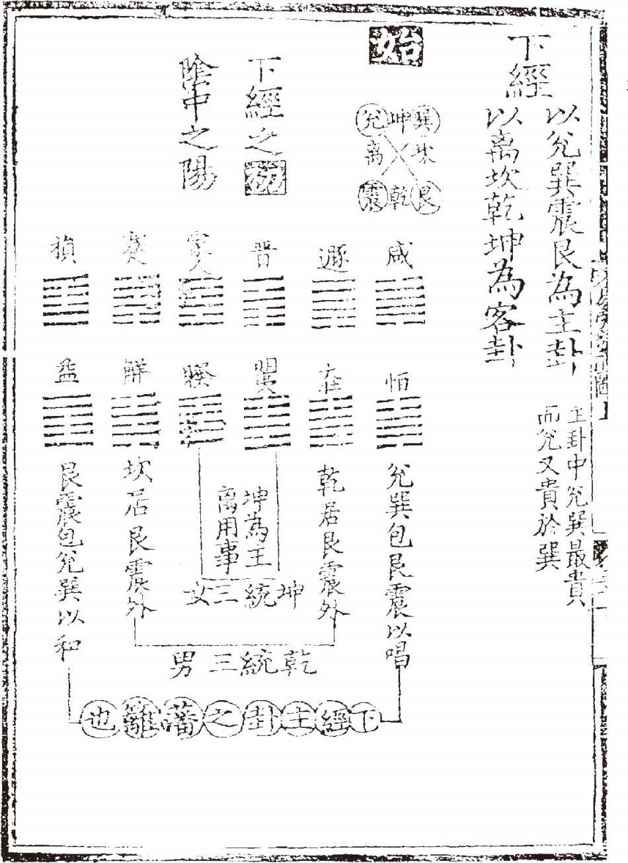 下經
以兌巽震艮為主卦
以离坎乾坤為客卦
主卦中兌巽最貴
而兌又貴於巽
始
巽坤兌
坎离
艮乾震
下經之
陰中之陽
咸
遯
晉
家人
蹇
損
恒
壯
明夷
睽
解
益
兌巽包艮震以唱
乾居艮震外
坤為主
离用事
坎居艮震外
艮震包兌巽以和
坤統三女
乾統三男
下經主卦之藩籬也